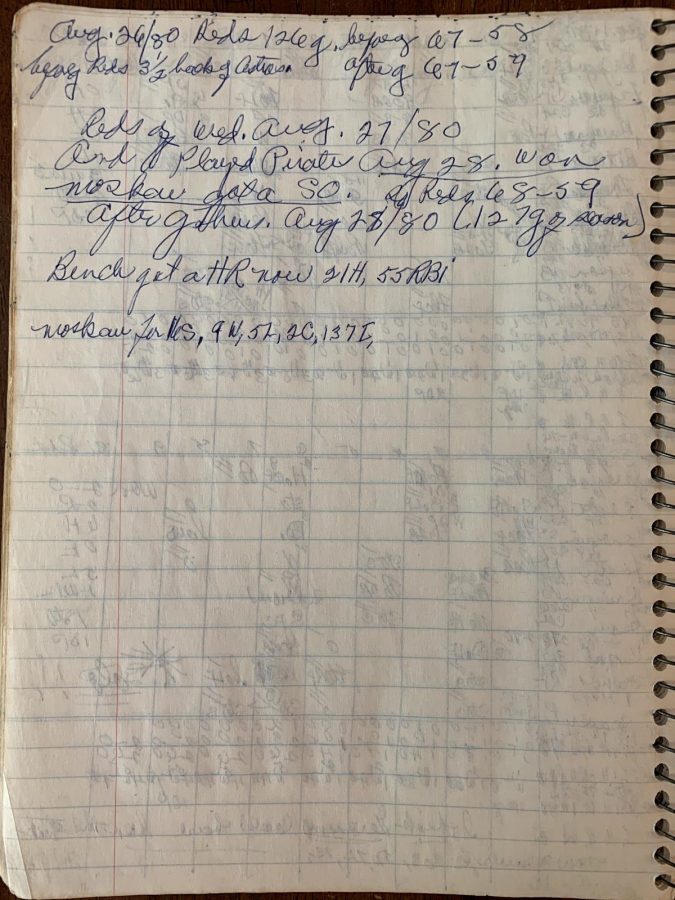 Aug. 26/80 Reds 126g, before g 67-58
before g Reds 3 1/2 back of Astros. after g 67-59
Reds off Wed. Aug. 27/80
And Played Pirates Aug 28. Won
Moskau got a SO. Reds 68-59
After g Thurs. Aug 28/80 (127 g of season)
Bench got a HR now 21H, 55RBi
Moskau for 9W, 5L, 2C, 137I,